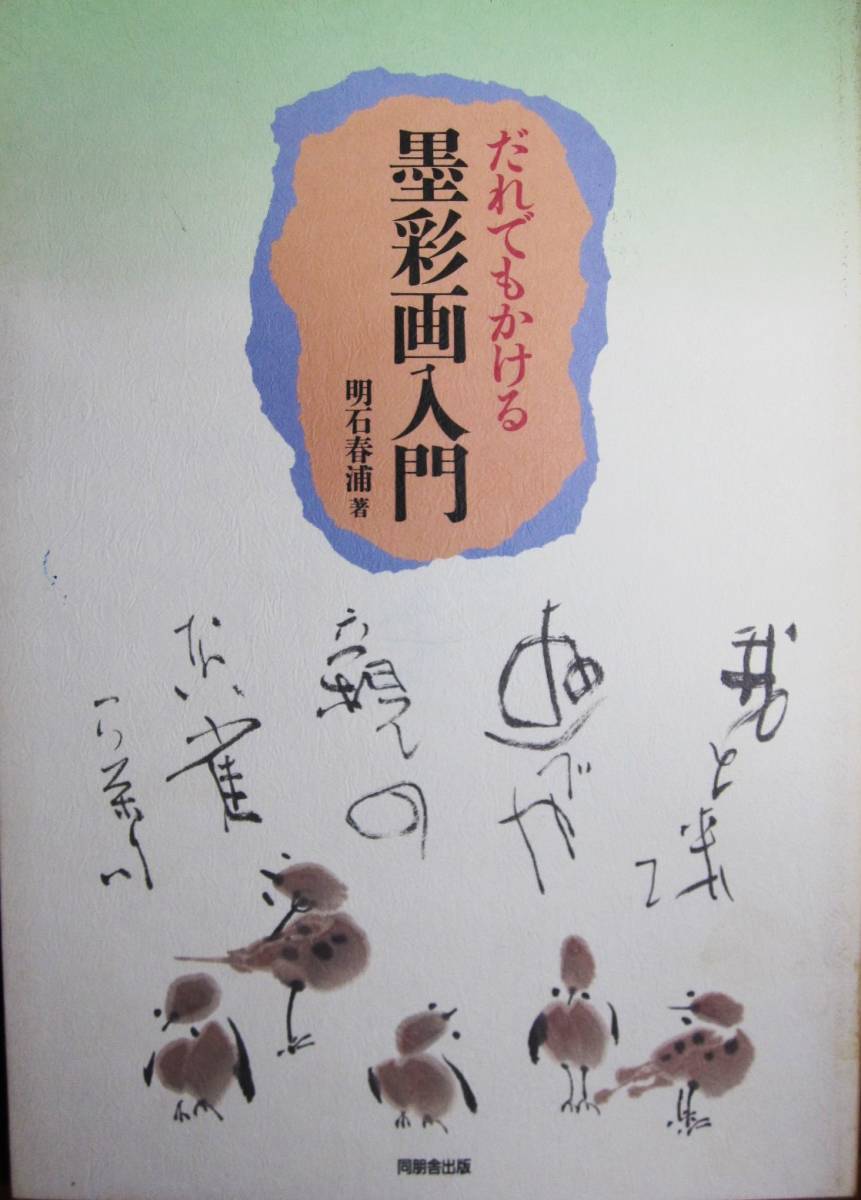 だれでもかける
墨彩画入門
明石春浦 著
我と来て
遊べや
親の
ない雀
同朋舎出版